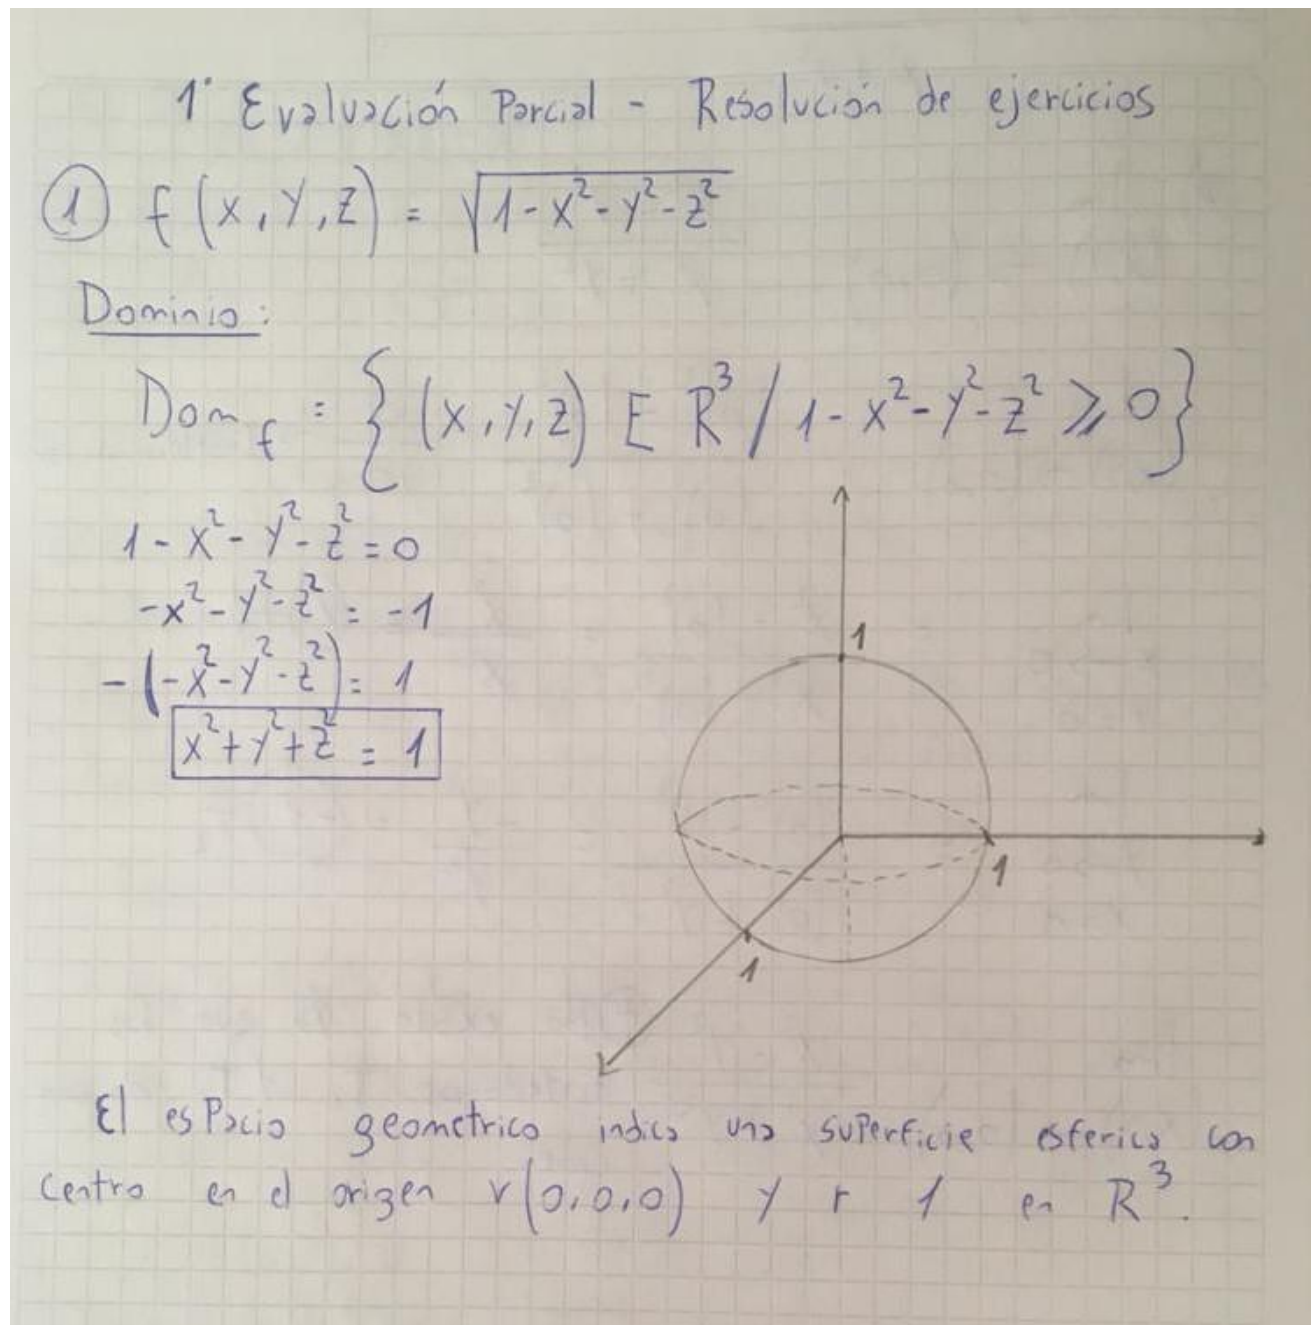 1° Evaluación Parcial - Resolución de ejercicios
① f(x,y,z) = √(1-x²-y²-z²)
Dominio:
Dom f = { (x,y,z) E R³ / 1-x²-y²-z² ⩾ 0 }
1-x²-y²-z²=0
-x²-y²-z² = -1
-(-x²-y²-z²) = 1
x²+y²+z² = 1
1
1
1
El esPacio geometrico indica una suPerficie esferica con
centro en el origen v(0,0,0) y r 1 en R³.